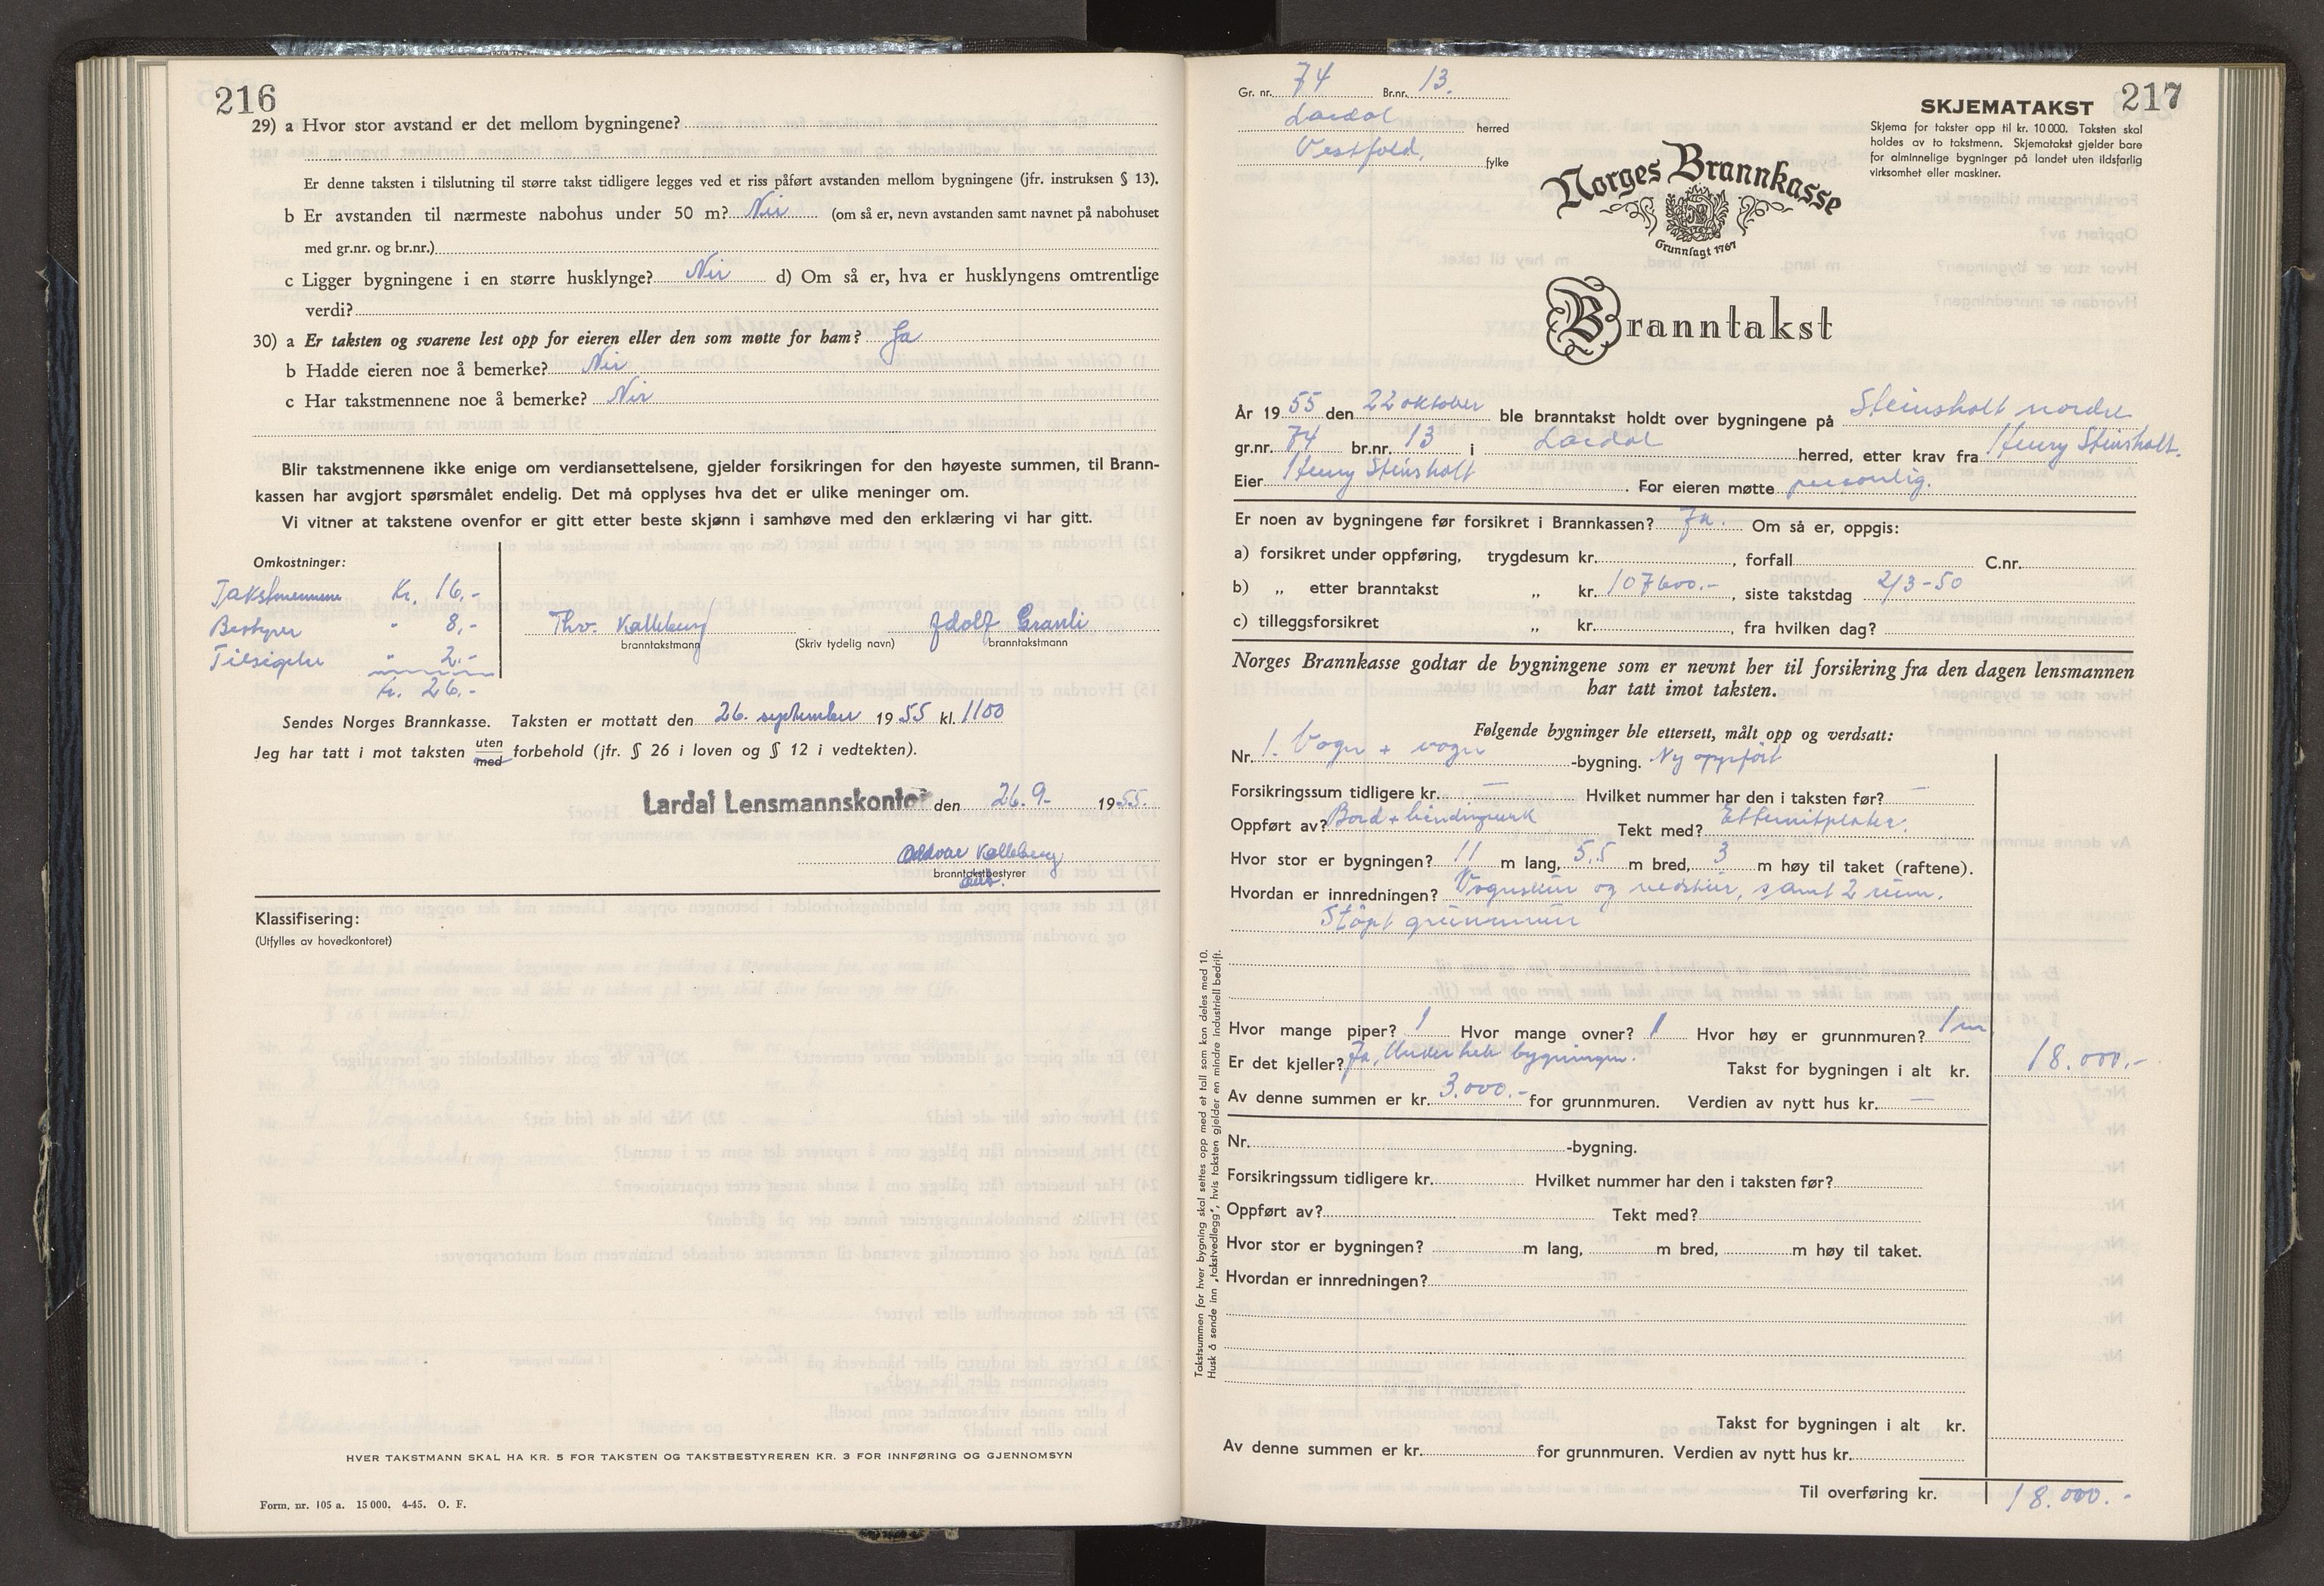 216
29) a Hvor stor avstand er det mellom bygningene?
Er denne taksten i tilslutning til større takst tidligere legges ved et riss påført avstanden mellom bygningene (jfr. instruksen § 13).
b Er avstanden til nærmeste nabohus under 50 m? Nei (om så er, nevn avstanden samt navnet på nabohuset
med gr.nr. og br.nr.)
c Ligger bygningene i en større husklynge? Nei d) Om så er, hva er husklyngens omtrentlige
verdi?
30) a Er taksten og svarene lest opp for eieren eller den som møtte for ham? Ja
b Hadde eieren noe å bemerke? Nei
c Har takstmennene noe å bemerke? Nei
Blir takstmennene ikke enige om verdiansettelsene, gjelder forsikringen for den høyeste summen, til Brann-
kassen har avgjort spørsmålet endelig. Det må opplyses hva det er ulike meninger om.
Vi vitner at takstene ovenfor er gitt etter beste skjønn i samhøve med den erklæring vi har gitt.
Omkostninger:
Takstmennene Kr. 16,-
Bestyrer " 8,-
Tilsigelse " 2.-
Kr. 26.-
Thv. Kalleberg Adolf Granli
branntakstmann (Skriv tydelig navn) branntakstmann
Sendes Norges Brannkasse. Taksten er mottatt den 26. september 1955 kl. 1100
Jeg har tatt i mot taksten uten med forbehold (jfr. § 26 i loven og § 12 i vedtekten).
Lardal Lensmannskontor den 26.9- 1955.
Oddvar Kalleberg
branntakstbestyrer
Klassifisering:
(Utfylles av hovedkontoret)
HVER TAKSTMANN SKAL HA KR. 5 FOR TAKSTEN OG TAKSTBESTYREREN KR. 3 FOR INNFØRING OG GJENNOMSYN
Form. nr. 105 a. 15 000. 4-45. O. F.
217
Gr. nr. 74 Br.nr. 13.
Lardal herred
Vestfold, fylke
SKJEMATAKST
Skjema for takster opp til kr. 10 000. Taksten skal
holdes av to takstmenn. Skjematakst gjelder bare
for alminnelige bygninger på landet uten ildsfarlig
virksomhet eller maskiner.
Norges Brannkasse
Grunnlagt 1767
Branntakst
År 1955 den 22 oktober ble branntakst holdt over bygningene på Steinsholt nordre
gr.nr. 74 br.nr. 13 i Lardal herred, etter krav fra Henry Steinsholt.
Eier Henry Steinsholt. For eieren møtte personlig.
Er noen av bygningene før forsikret i Brannkassen? Ja. Om så er, oppgis:
a) forsikret under oppføring, trygdesum kr. , forfall C.nr.
b) „ etter branntakst „ kr. 107600.- , siste takstdag 2/3-50
c) tilleggsforsikret „ kr. , fra hvilken dag?
Norges Brannkasse godtar de bygningene som er nevnt her til forsikring fra den dagen lensmannen
har tatt imot taksten.
Følgende bygninger ble ettersett, målt opp og verdsatt:
Nr. 1. Vogn + vogn -bygning. Ny oppført
Forsikringssum tidligere kr. — Hvilket nummer har den i taksten før? —
Oppført av? Bord + bindingverk Tekt med? Etternitplater.
Hvor stor er bygningen? 11 m lang, 5,5 m bred, 3 m høy til taket (raftene).
Hvordan er innredningen? Vognskur og vedskur, samt 2 rum.
Støpt grunnmur
Hvor mange piper? 1 Hvor mange ovner? 1 Hvor høy er grunnmuren? 1 m
Er det kjeller? Ja, Under hele bygningen. Takst for bygningen i alt kr. 18.000.-
Av denne summen er kr. 3.000.- for grunnmuren. Verdien av nytt hus kr. —
Nr. -bygning.
Forsikringssum tidligere kr. Hvilket nummer har den i taksten før?
Oppført av? Tekt med?
Hvor stor er bygningen? m lang, m bred, m høy til taket.
Hvordan er innredningen?
Takst for bygningen i alt kr.
Av denne summen er kr. for grunnmuren. Verdien av nytt hus kr.
Til overføring kr. 18.000.-
Takstsummen for hver bygning skal settes opp med et tall som kan deles med 10.
Husk å sende inn „takstvedlegg“, hvis taksten gjelder en mindre industriell bedrift.